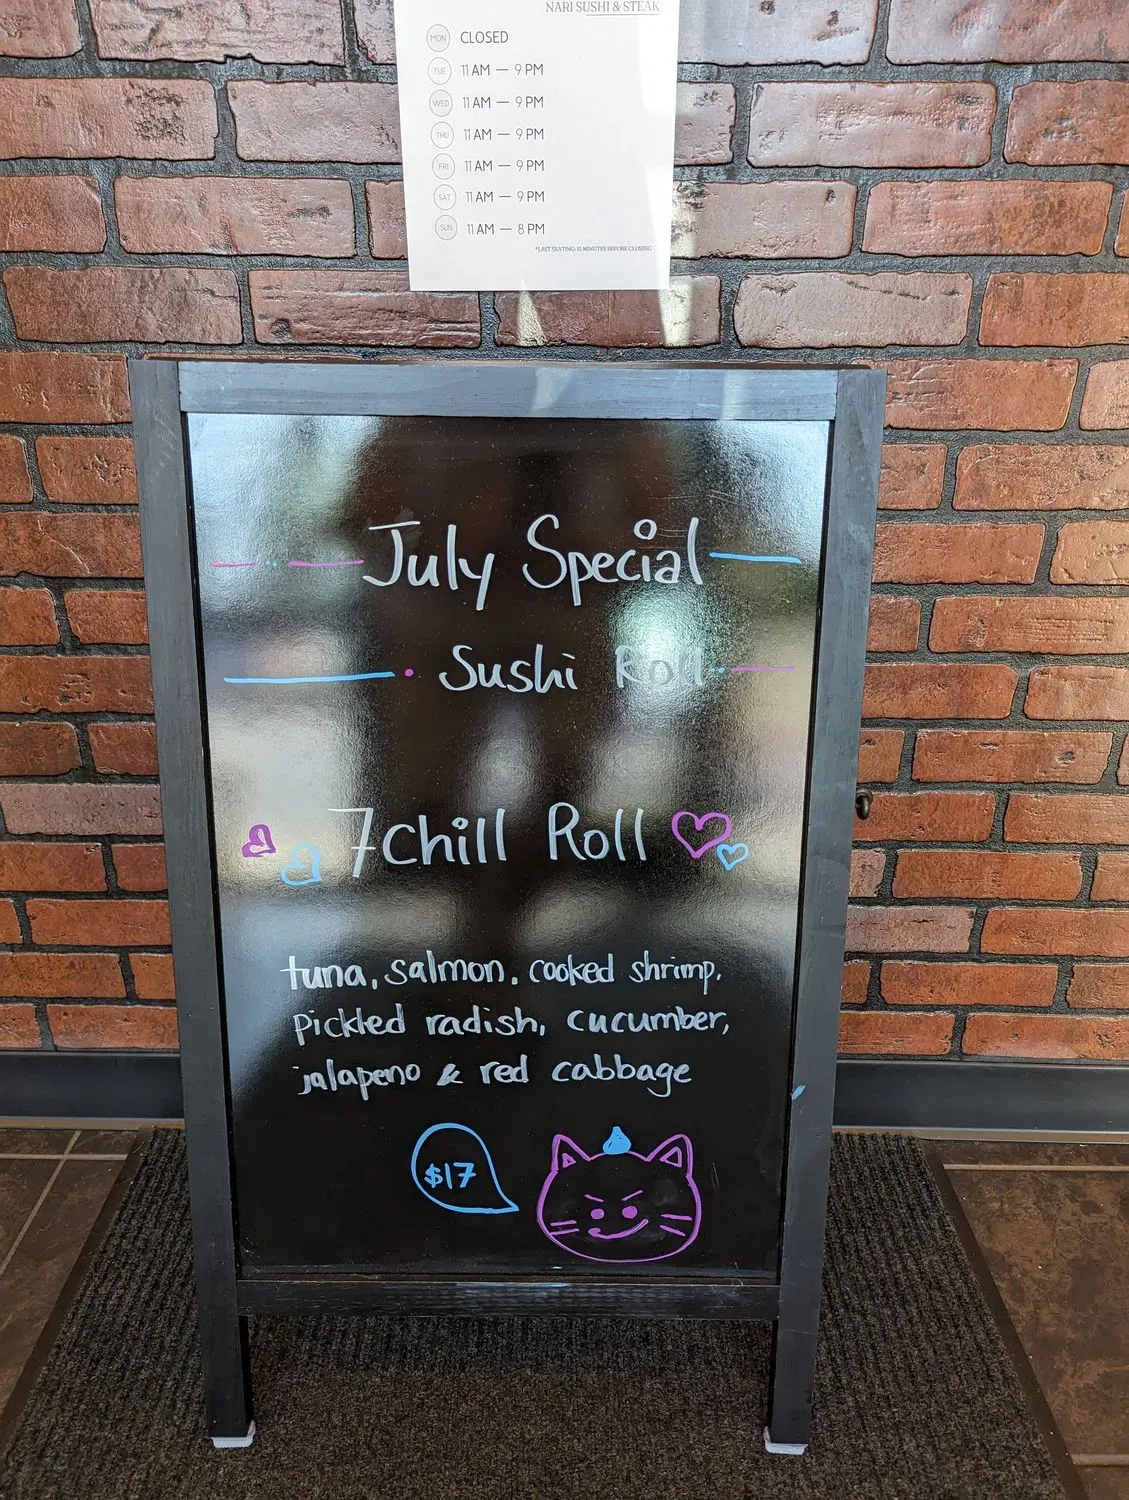 NARI SUSHI & STEAK
MON CLOSED
TUE 11 AM — 9 PM
WED 11 AM — 9 PM
THU 11 AM — 9 PM
FRI 11 AM — 9 PM
SAT 11 AM — 9 PM
SUN 11 AM — 8 PM
*LAST SEATING: 15 MINUTES BEFORE CLOSING
July Special
Sushi Roll
7chill Roll
tuna, salmon, cooked shrimp,
pickled radish, cucumber,
jalapeno & red cabbage
$17